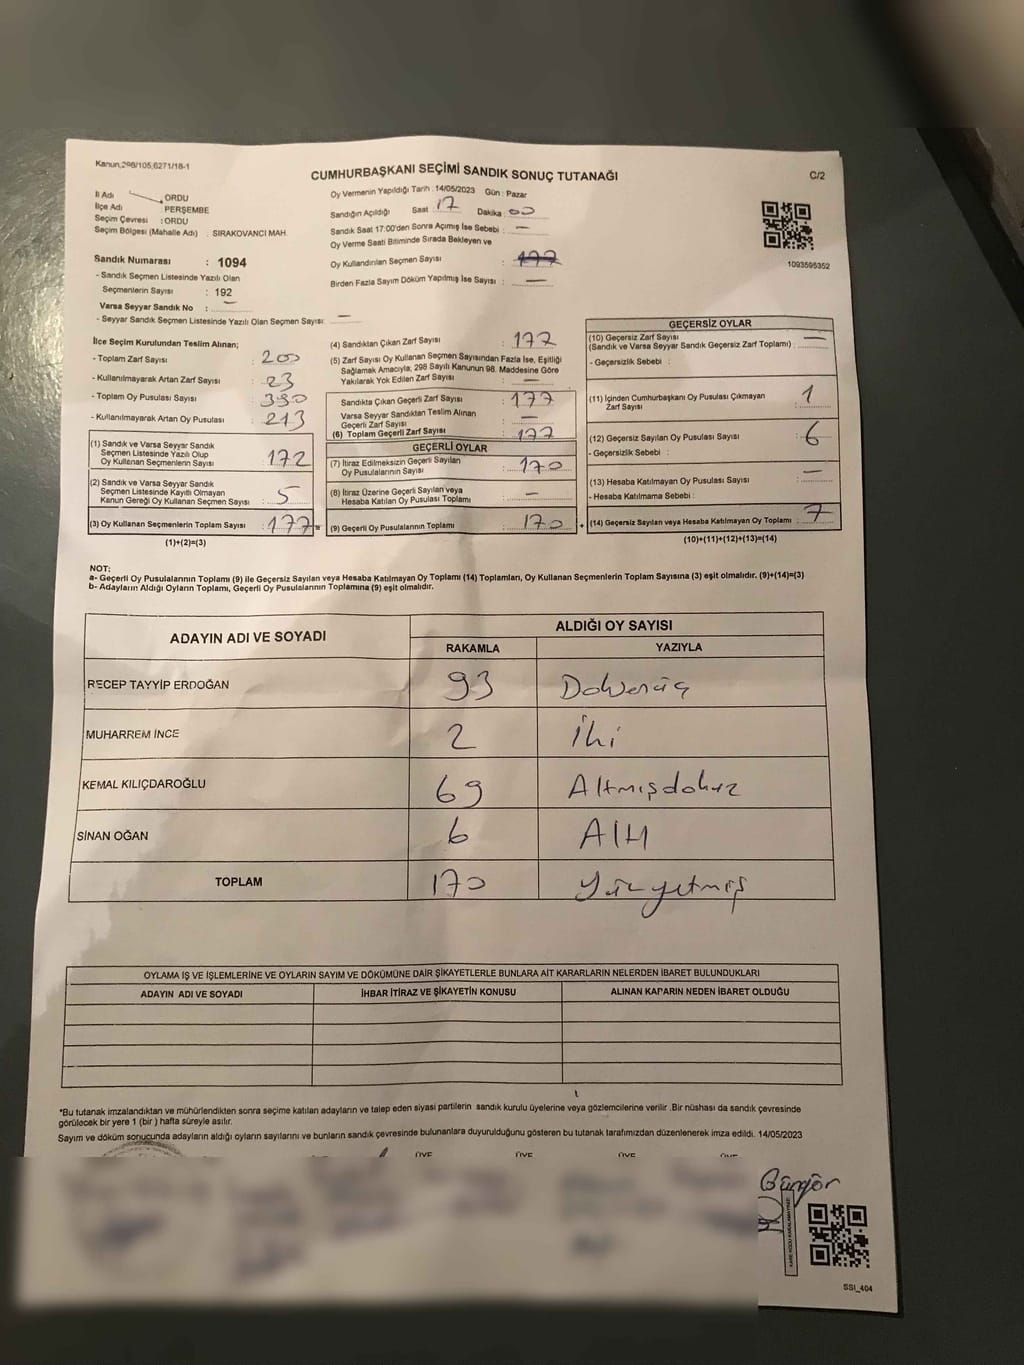 Kanun,298/105,6271/18-1
CUMHURBAŞKANI SEÇİMİ SANDIK SONUÇ TUTANAĞI
C/2
İl Adı : ORDU
İlçe Adı : PERŞEMBE
Seçim Çevresi : ORDU
Seçim Bölgesi (Mahalle Adı) : SIRAKOVANCI MAH.
Oy Vermenin Yapıldığı Tarih : 14/05/2023 Gün : Pazar
Sandığın Açıldığı Saat : 17 Dakika : 00
Sandık Saat 17:00'den Sonra Açılmış İse Sebebi : —
Oy Verme Saati Bitiminde Sırada Bekleyen ve
Oy Kullandırılan Seçmen Sayısı : 177
Birden Fazla Sayım Döküm Yapılmış İse Sayısı : —
1093595352
Sandık Numarası : 1094
- Sandık Seçmen Listesinde Yazılı Olan
Seçmenlerin Sayısı : 192
Varsa Seyyar Sandık No : —
- Seyyar Sandık Seçmen Listesinde Yazılı Olan Seçmen Sayısı: —
İlçe Seçim Kurulundan Teslim Alınan;
- Toplam Zarf Sayısı : 200
- Kullanılmayarak Artan Zarf Sayısı : 23
- Toplam Oy Pusulası Sayısı : 390
- Kullanılmayarak Artan Oy Pusulası : 213
(1) Sandık ve Varsa Seyyar Sandık
Seçmen Listesinde Yazılı Olup
Oy Kullanan Seçmenlerin Sayısı : 172
(2) Sandık ve Varsa Seyyar Sandık
Seçmen Listesinde Kayıtlı Olmayan
Kanun Gereği Oy Kullanan Seçmen Sayısı : 5
(3) Oy Kullanan Seçmenlerin Toplam Sayısı : 177 =
(1)+(2)=(3)
(4) Sandıktan Çıkan Zarf Sayısı : 177
(5) Zarf Sayısı Oy Kullanan Seçmen Sayısından Fazla İse, Eşitliği
Sağlamak Amacıyla, 298 Sayılı Kanunun 98. Maddesine Göre
Yakılarak Yok Edilen Zarf Sayısı : —
Sandıkta Çıkan Geçerli Zarf Sayısı : 177
Varsa Seyyar Sandıktan Teslim Alınan
Geçerli Zarf Sayısı : —
(6) Toplam Geçerli Zarf Sayısı : 177
GEÇERLİ OYLAR
(7) İtiraz Edilmeksizin Geçerli Sayılan
Oy Pusulalarının Sayısı : 170
(8) İtiraz Üzerine Geçerli Sayılan veya
Hesaba Katılan Oy Pusulası Toplamı : —
(9) Geçerli Oy Pusulalarının Toplamı : 170 +
GEÇERSİZ OYLAR
(10) Geçersiz Zarf Sayısı
(Sandık ve Varsa Seyyar Sandık Geçersiz Zarf Toplamı) : —
- Geçersizlik Sebebi :
(11) İçinden Cumhurbaşkanı Oy Pusulası Çıkmayan
Zarf Sayısı : 1
(12) Geçersiz Sayılan Oy Pusulası Sayısı : 6
- Geçersizlik Sebebi :
(13) Hesaba Katılmayan Oy Pusulası Sayısı : —
- Hesaba Katılmama Sebebi :
(14) Geçersiz Sayılan veya Hesaba Katılmayan Oy Toplamı : 7
(10)+(11)+(12)+(13)=(14)
NOT:
a- Geçerli Oy Pusulalarının Toplamı (9) ile Geçersiz Sayılan veya Hesaba Katılmayan Oy Toplamı (14) Toplamları, Oy Kullanan Seçmenlerin Toplam Sayısına (3) eşit olmalıdır. (9)+(14)=(3)
b- Adayların Aldığı Oyların Toplamı, Geçerli Oy Pusulalarının Toplamına (9) eşit olmalıdır.
ADAYIN ADI VE SOYADI
ALDIĞI OY SAYISI
RAKAMLA YAZIYLA
RECEP TAYYİP ERDOĞAN 93
MUHARREM İNCE 2 İki
KEMAL KILIÇDAROĞLU 69 Altmışdokuz
SİNAN OĞAN 6 Altı
TOPLAM 170 Yüzyetmiş
OYLAMA İŞ VE İŞLEMLERİNE VE OYLARIN SAYIM VE DÖKÜMÜNE DAİR ŞİKAYETLERLE BUNLARA AİT KARARLARIN NELERDEN İBARET BULUNDUKLARI
ADAYIN ADI VE SOYADI İHBAR İTİRAZ VE ŞİKAYETİN KONUSU ALINAN KARARIN NEDEN İBARET OLDUĞU
*Bu tutanak imzalandıktan ve mühürlendikten sonra seçime katılan adayların ve talep eden siyasi partilerin sandık kurulu üyelerine veya gözlemcilerine verilir .Bir nüshası da sandık çevresinde
görülecek bir yere 1 (bir ) hafta süreyle asılır.
Sayım ve döküm sonucunda adayların aldığı oyların sayılarını ve bunların sandık çevresinde bulunanlara duyurulduğunu gösteren bu tutanak tarafımızdan düzenlenerek imza edildi. 14/05/2023
ÜYE ÜYE ÜYE ÜYE
Güngör
SSI_404